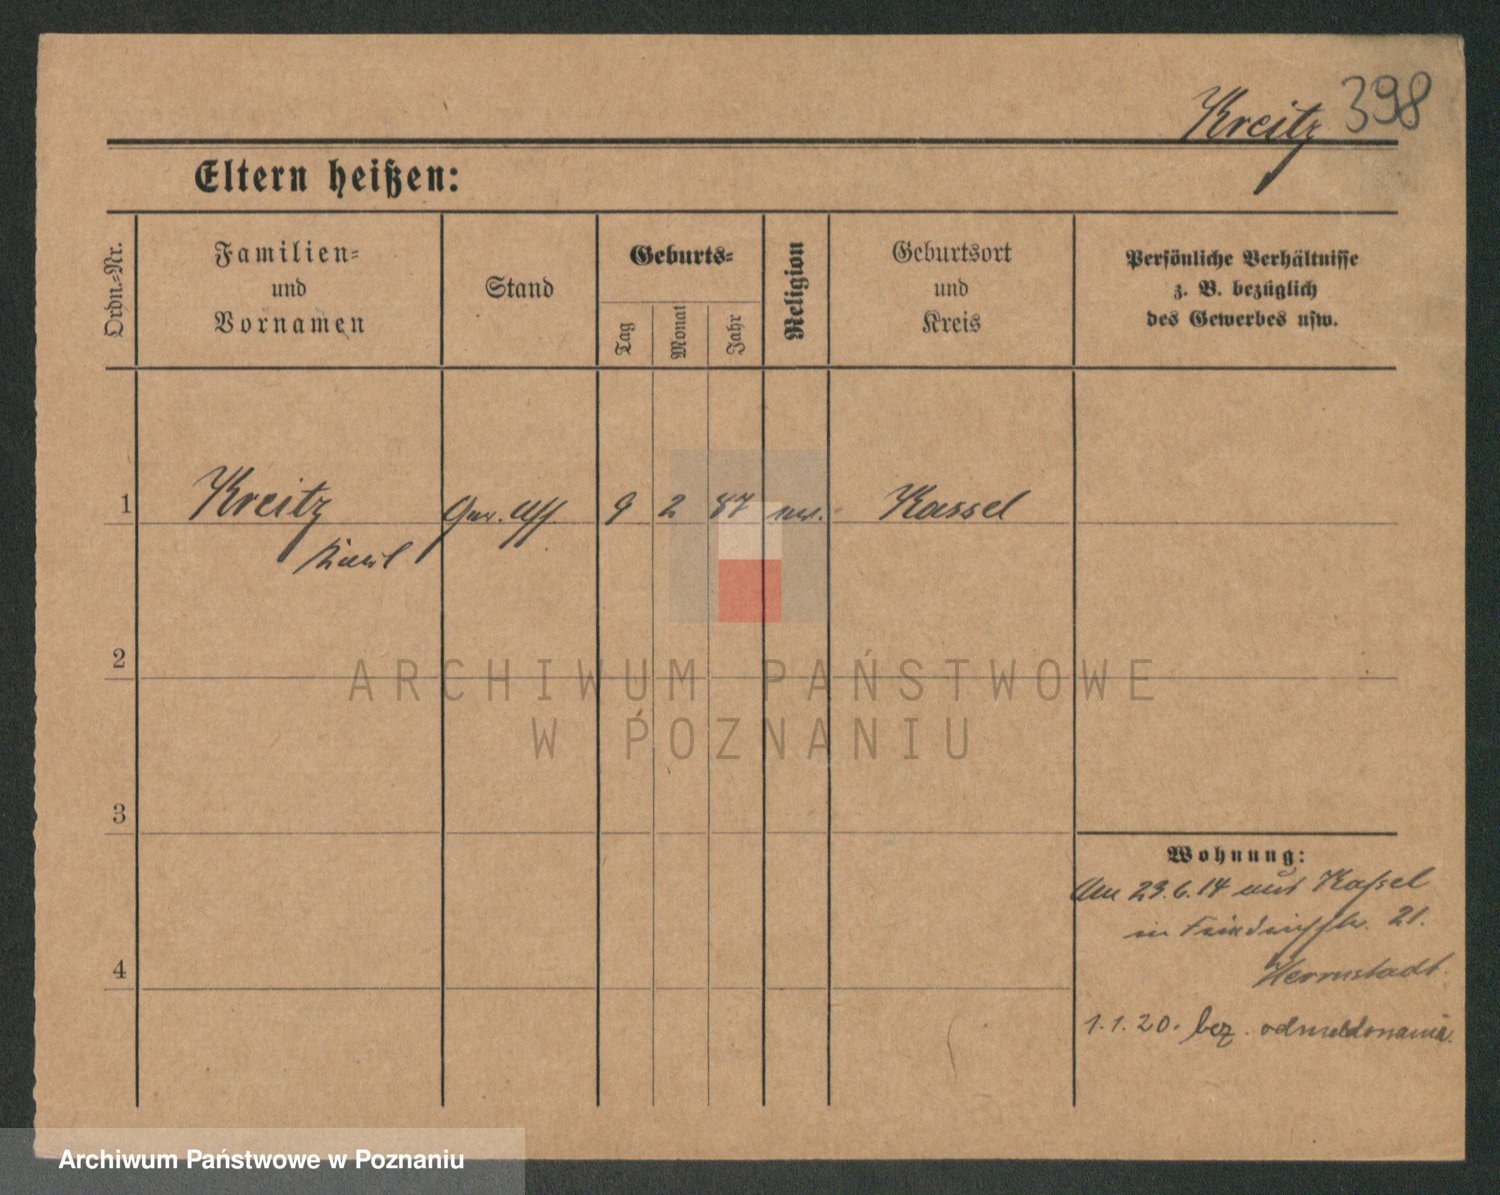 Kreitz 398
Eltern heißen:
Ordn.-Nr.
Familien-
und
Vornamen
Stand
Geburts-
Tag
Monat
Jahr
Religion
Geburtsort
und
Kreis
Persönliche Verhältnisse
z. B. bezüglich
des Gewerbes usw.
1 Kreitz 9 2 87 Kassel
Karl
2
ARCHIWUM PAŃSTWOWE
W POZNANIU
3
Wohnung:
Am 23.6.14 aus Kaſsel
in Friedrichstr. 21.
4
Herrnstadt.
1.1.20. bez. odmeldowania.
Archiwum Państwowe w Poznaniu